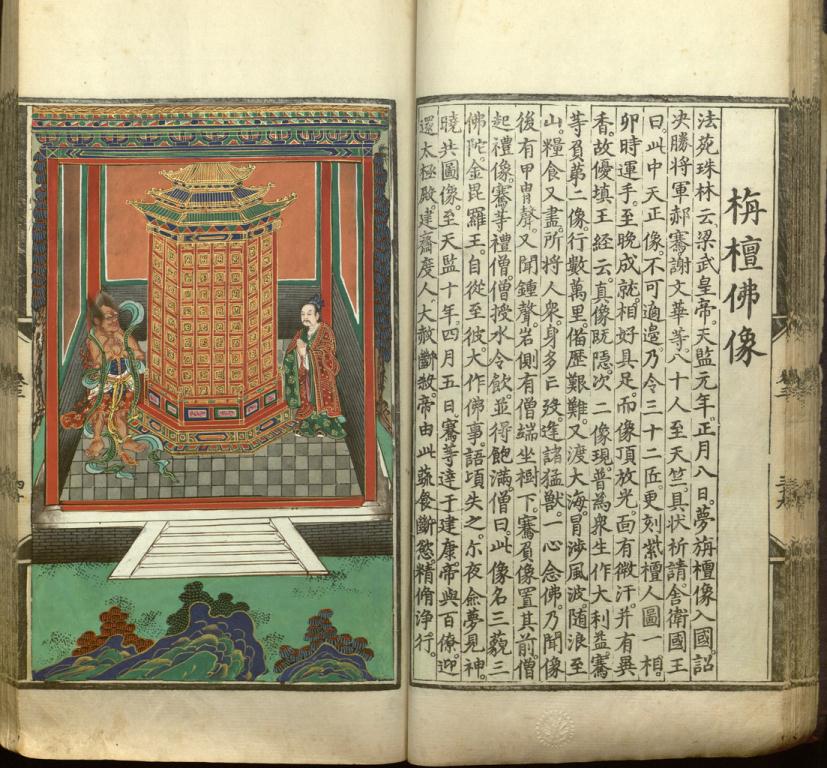 栴檀佛像
法苑珠林云梁武皇帝天監元年正月八日夢旃檀像入國詔
決勝將軍郝騫謝文華等八十人至天竺具狀祈請舍衛國王
曰此中天正像不可適邊乃令三十二匠更刻紫檀人圖一相
卯時運手至晚成就相好具足而像頂放光面有微汗并有異
香故優填王經云真像既隱次二像現普為衆生作大利益騫
等負第二像行數萬里偹歷艱難又渡大海冒涉風波隨浪至
山糧食又盡所將人衆身多亡歿逢諸猛獸一心念佛乃聞像
後有甲冑聲又聞鍾聲岩側有僧端坐樹下騫負像置其前僧
起禮像騫等禮僧僧授水令飲並得飽滿僧曰此像名三藐三
佛陀金毘羅王自從至彼大作佛事語頃失之尒夜僉夢見神
曉共圖像至天監十年四月五日騫等達于建康帝與百僚迎
還太極殿建齋度人大赦斷殺帝由此蔬食斷慾精脩浄行